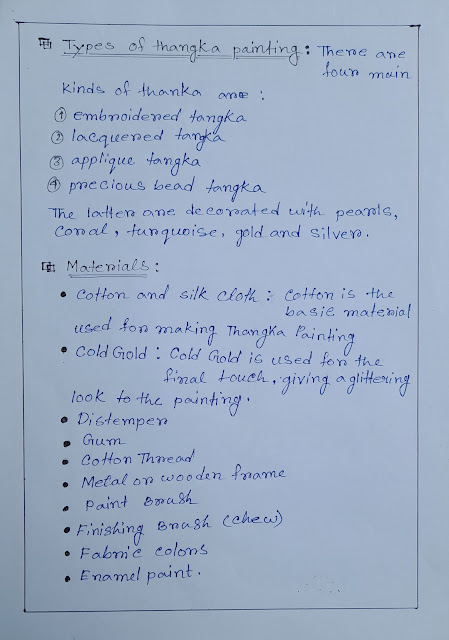 Types of thangka painting : There are
four main
kinds of thanka are :
① embroidered tangka
② lacquered tangka
③ applique tangka
④ precious bead tangka
The latter are decorated with pearls,
coral, turquoise, gold and silver.
Materials :
• Cotton and silk cloth : Cotton is the
basic material
used for making Thangka Painting
• Cold Gold : Cold Gold is used for the
final touch, giving a glittering
look to the painting.
• Distemper
• Gum
• Cotton Thread
• Metal or wooden frame
• Paint Brush
• Finishing Brush (Chew)
• Fabric colors
• Enamel paint.